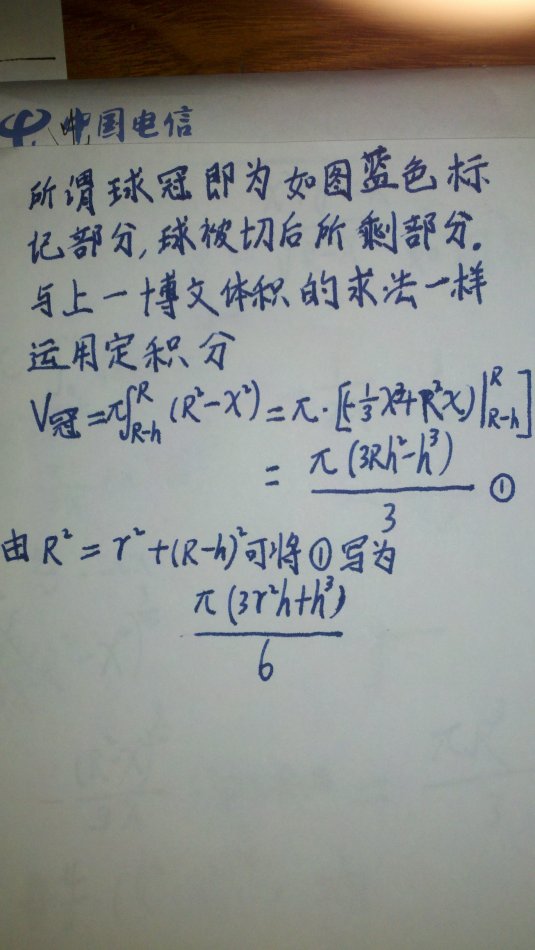 中国电信
所谓球冠即为如图蓝色标
记部分,球被切后所剩部分。
与上一博文体积的求法一样
运用定积分
V冠=π∫_{R-h}^{R}(R²-x²)=π·[(-\frac{1}{3}x³+R²x)|_{R-h}^{R}]
=\frac{π(3Rh²-h³)}{3} ①
由R²=r²+(R-h)²可将①写为
\frac{π(3r²h+h³)}{6}